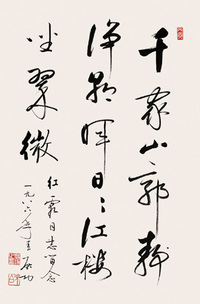 千家山郭静
朝晖日〻江楼
坐翠微
红霞同志留念
一九八六年夏 启功